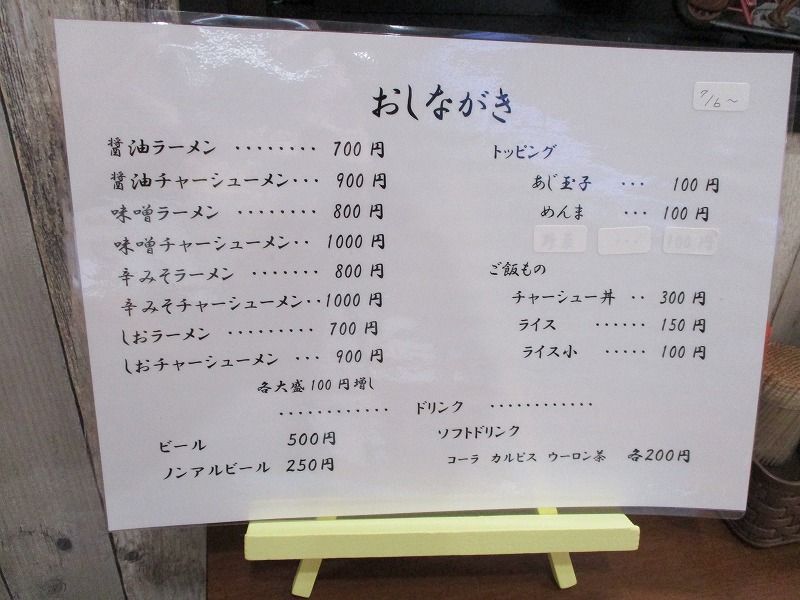 おしながき
7/6～
醤油ラーメン ········ 700円
醤油チャーシューメン··· 900円
味噌ラーメン ········ 800円
味噌チャーシューメン·· 1000円
辛みそラーメン ······· 800円
辛みそチャーシューメン··1000円
しおラーメン ········· 700円
しおチャーシューメン ··· 900円
各大盛100円増し
トッピング
あじ玉子 ··· 100円
めんま ··· 100円
野菜 ··· 100円
ご飯もの
チャーシュー丼 ·· 300円
ライス ······ 150円
ライス小 ····· 100円
············ ドリンク ············
ビール 500円
ノンアルビール 250円
ソフトドリンク
コーラ カルピス ウーロン茶 各200円